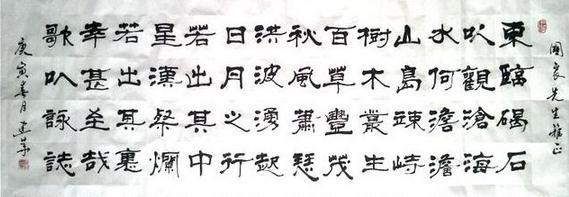 國良先生雅正
東臨碣石
㕥觀滄海
水何澹澹
山島竦峙
樹木叢生
百草豐茂
秋風蕭瑟
洪波湧起
日月之行
若出其中
星漢粲爛
若出其裏
幸甚至哉
歌㕥詠誌
庚寅春月